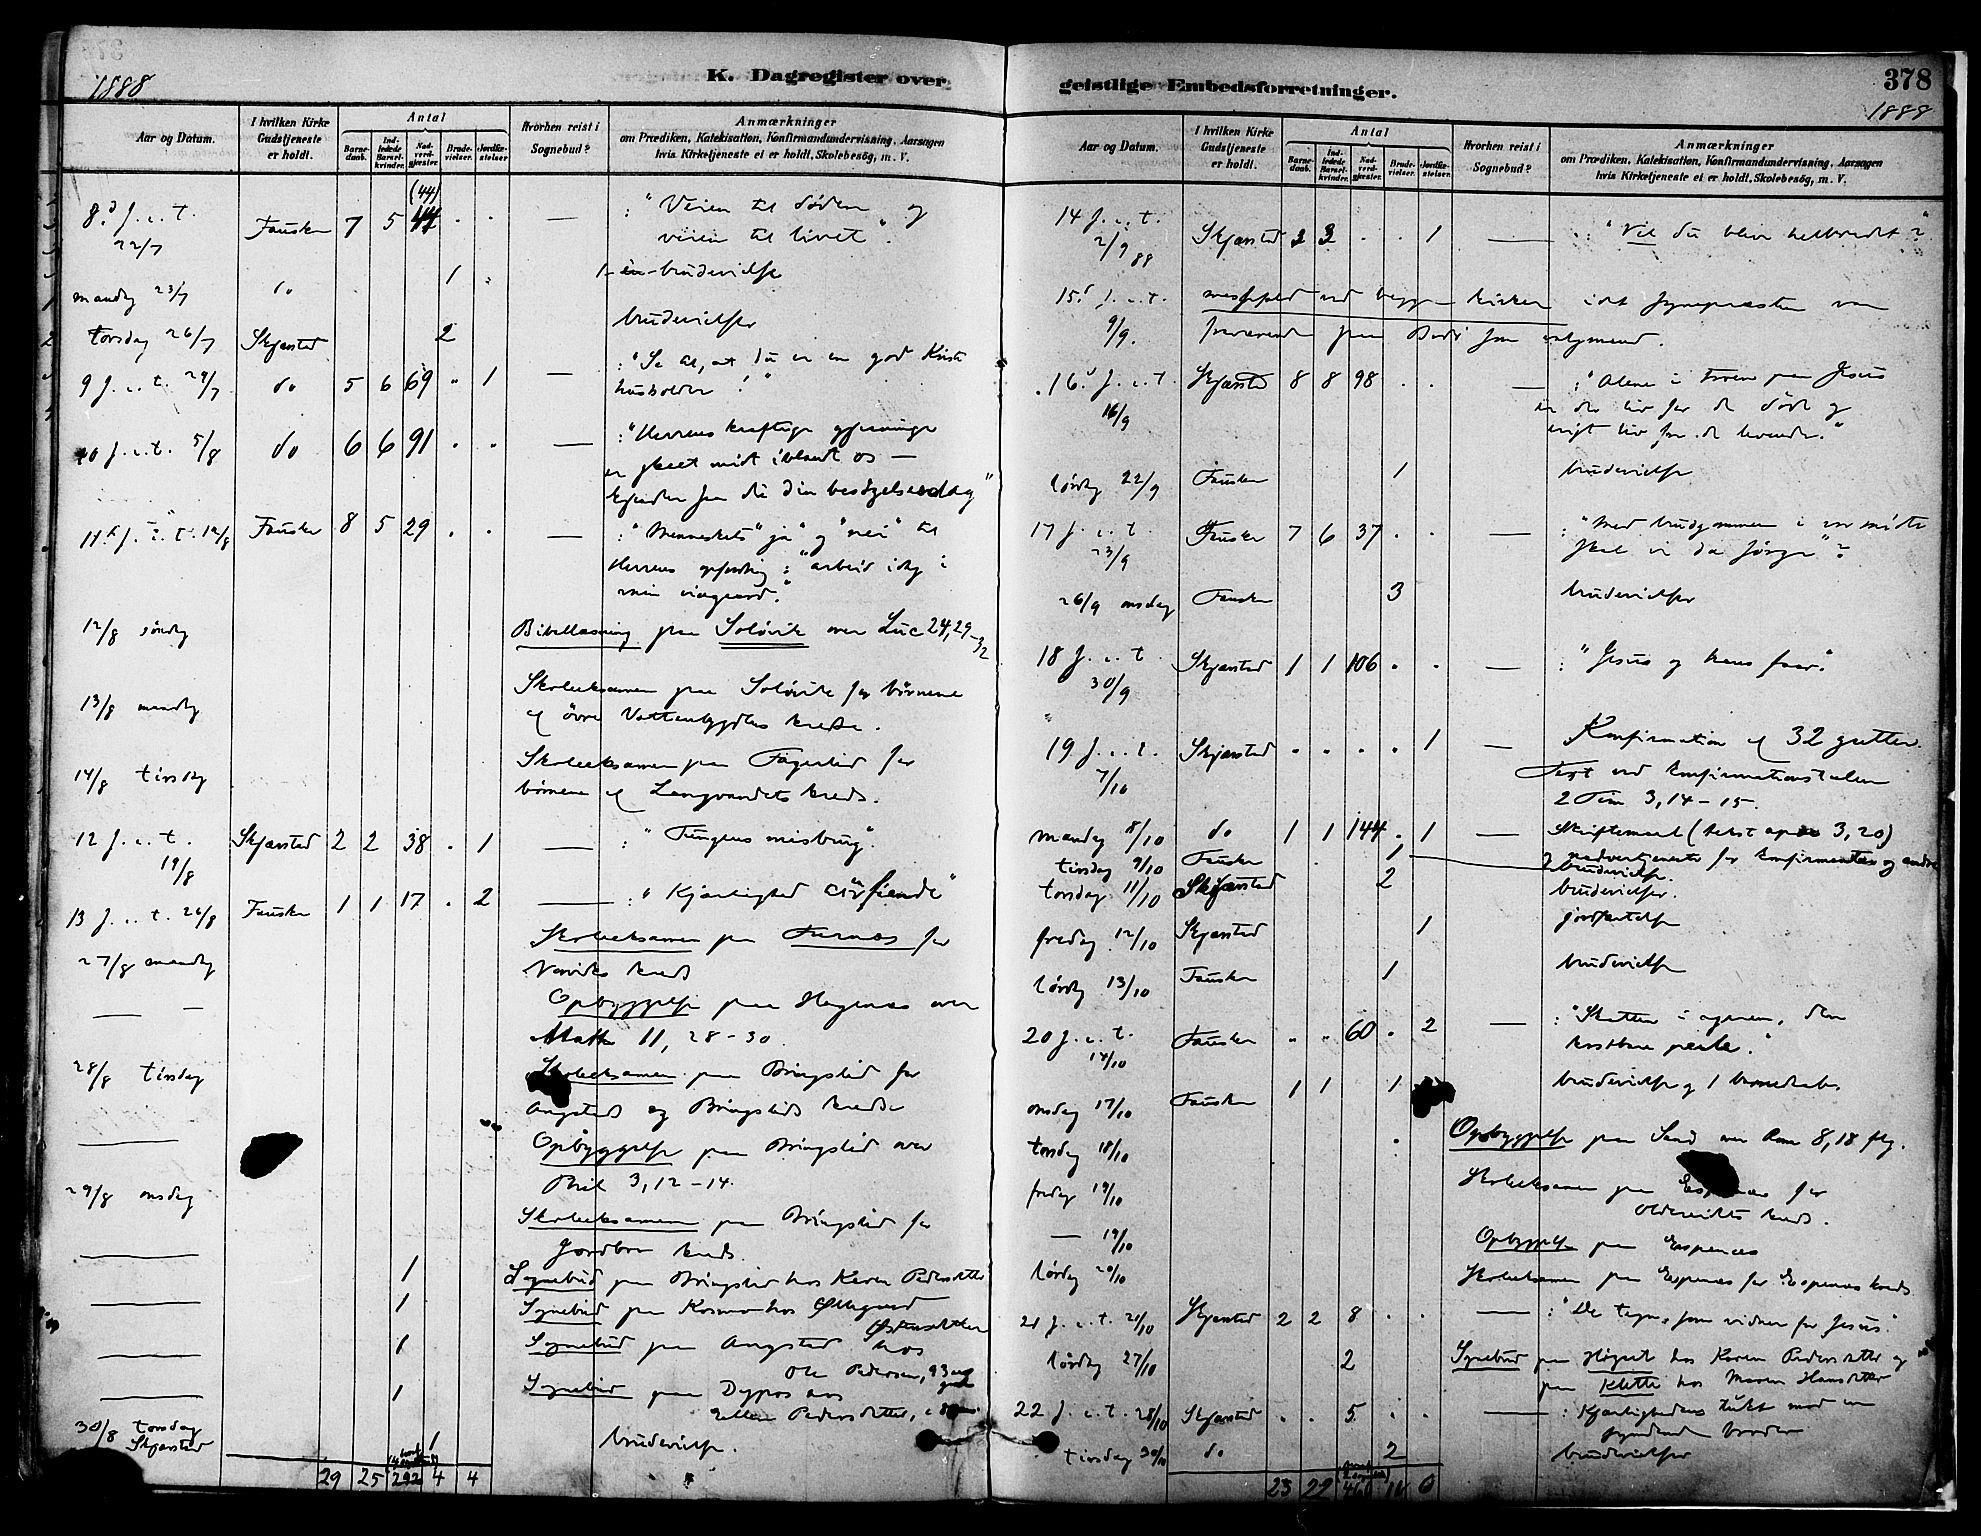 1888
K. Dagregister over
Aar og Datum.
I hvilken Kirke Gudstjeneste er holdt.
Antal
Barne-daab.
Ind-ledede Barsel-kvinder.
Nad-verd-gjæster.
Brude-vielser.
Jordfæ-stelser
Hvorhen reist i Sognebud?
Anmærkninger
om Prædiken, Katekisation, Konfirmandundervisning, Aarsagen
hvis Kirketjeneste ei er holdt, Skolebesøg, m. V.
(44)
8. f. e. t. 22/7 Fauske 7 5 44 " " — : "Veien til døden og
veien til livet".
mandag 23/7 do 1 brudevielse
torsdag 26/7 Skjærstad 2 brudevielser
9 f. e. t. 29/7 do 5 6 69 " 1 — : "Se til, at du er en god
husholder!"
10 f. e. t. 5/8 do 6 6 91 . . — : "Herrens kraftige gjerninger
er skeet midt iblandt os —
din besøgelsesdag"
11. f. e. t. 12/8 Fauske 8 5 29 . . — : "Menneskets "ja" og "nei" til
Herrens opfordring: "arbeid idag i
min viingaard."
12/8 søndag Bibellæsning paa Soløvik over Luc 24, 29-32
13/8 mandag Skoleeksamen paa Soløvik for børnene
af øvre Vattenbygdens kreds.
14/8 tirsdag Skoleeksamen paa Fagerlid for
børnene af Langvandets kreds.
12 f. e. t. 19/8 Skjærstad 2 2 38 . 1 — : "Tungens misbrug".
13 f. e. t. 26/8 Fauske 1 1 17 . 2 — : "Kjærlighed
27/8 mandag Skoleeksamen paa for
kreds
— — Opbyggelse paa over
Matth 11, 28-30.
28/8 tirsdag Skoleeksamen paa Bringslid for
og Bringslids kredse
— Opbyggelse paa Bringslid over
Phil 3, 12-14.
29/8 onsdag Skoleeksamen paa Bringslid for
Jordbro kreds.
— 1 Sognebud paa Bringslid hos Karen Pedersdatter
— 1 Sognebud paa Kosmo hos
— 1 Sognebud paa Angstad hos
Ole Pedersen, 93
— 1 Sognebud paa hos
Ellen Pedersdatter,
30/8 torsdag Skjærstad 1 brudevielse.
29 25 292 4 4
geistlige Embedsforretninger.
378
1888
Aar og Datum.
I hvilken Kirke Gudstjeneste er holdt.
Antal
Barne-daab.
Ind-ledede Barsel-kvinder.
Nad-verd-gjæster.
Brude-vielser.
Jordfæ-stelser.
Hvorhen reist i Sognebud?
Anmærkninger
om Prædiken, Katekisation, Konfirmandundervisning, Aarsagen
hvis Kirketjeneste ei er holdt, Skolebesøg, m. V.
14 f. e. t. 2/9 88 Skjærstad 3 3 . . 1 — : "Vil du blive helbredet?"
15. f. e. t. 9/9. messefald ved begge kirker idet sognepræsten var
fraværende paa Bodø som valgmand.
16. f. e. t. 16/9 Skjærstad 8 8 98 . . — : "Alene i troen paa Jesus
er der liv for de døde og
evigt liv for de levende."
lørdag 22/9 Fauske 1 brudevielse
17 f. e. t. 23/9 Fauske 7 6 37 . . — : "Med brudgommen i vor midte
skal vi da sørge"?
26/9 onsdag Fauske 3 brudevielser
18 f. e. t. 30/9 Skjærstad 1 1 106 . . — : "Jesus og hans faar".
19 f. e. t. 7/10 Skjærstad . . . . 1 — Konfirmation af 32 gutter.
Text ved konfirmationstalen
2 Tim 3, 14-15.
mandag 8/10 do 1 1 144 . 1 — Skriftemaal (tekst 3, 20)
og nadvertjeneste for konfirmanter og andre
tirsdag 9/10 Fauske 1 brudevielse.
torsdag 11/10 Skjærstad 2 brudevielser.
fredag 12/10 Skjærstad 1 jordfæstelse
lørdag 13/10 Fauske 1 brudevielse
20 f. e. t. 14/10 Fauske " " 60 . 2 — : "Skatten i ageren, den
kostbare perle."
onsdag 17/10 Fauske 1 1 1 brudevielse og 1 barnedaab.
torsdag 18/10 Opbyggelse paa Sand over Rom 8, 18 flg.
fredag 19/10 Skoleeksamen paa for
kreds.
— 19/10 Opbyggelse paa Espenæs
lørdag 20/10 Skoleeksamen paa Espenæs for Espenæs kreds
21 f. e. t. 21/10 Skjærstad 2 2 8 . . — : "De tegn, som vidner for Jesus".
lørdag 27/10 2 Sognebud paa hos Karen Pedersdatter og
paa Klette hos Maren Hansdatter
22 f. e. t. 28/10 Skjærstad . . 5 . . — : Kjærlighedens tukt mod en
syndende broder
tirsdag 30/10 do 2 brudevielser
23 22